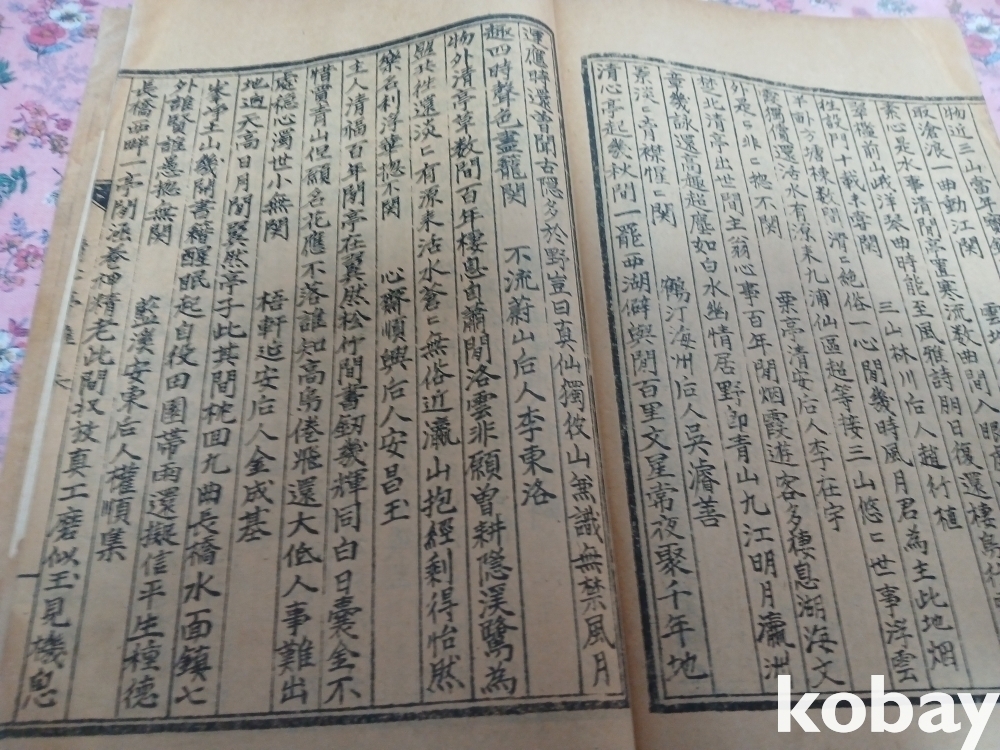 取滄浪一曲動江関
素心是水事清閒亭置寒流数曲間入眼
前山峨洋琴曲時能至風雅詩朋日復還棲鳥
性設門十載未 関 三山林川后人趙竹植
半畝方塘棟数間滑二絶俗一心閒幾時風月君為主此地烟
霞獨償還活水有源来九浦仙區超等接三山悠二世事浮雲
外是二非二摠不関 葉亭清安后人李在宇
北清亭出世間主翁心事百年閒烟霞遊客多棲息湖海文
章幾詠還高趣超塵如白水幽情居野郎青山九江明月瀛洲
景淡二青襟惺二関 鶴汀海州后人吳濬善
清心亭起幾秋間一罷西湖僻興閒百里文星常夜聚千年地
運應時還曾聞古隐多於野豈曰真仙獨彼山無識無禁風月
趣四時聲色盡籠関 不流蔚山后人李東洛
物外清亭草数間百年棲息自蕭閒洛雲非願曾耕隐溪鷺為
盟共徃還淡二有源来活水蒼二無俗近瀛山抱經剩得怡然
樂名利浮華摠不関 心齋順興后人安昌玉
主人清福百年閒亭在翼然松竹間書劔幾輝同白日囊金不
惜買青山但願名花應不落誰知高鳥倦飛還大低人事難出
處穏心濁世小無関 梧軒延安后人金成基
地逈天高日月閒翼然亭子此其間枕回九曲長橋水面鎮七
峯中主山幾閱書籍醒眠起自伇田園帶雨還擬信平生種德
外誰賢誰愚摠無関 藍漢安東后人權順集
長橋西畔一亭閒添養神精老此間収放真工磨似玉見機息